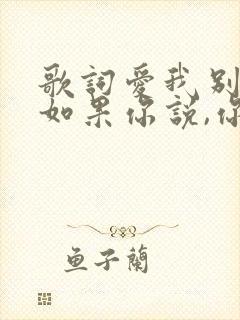 歌詞愛我別
如果你說,你
魚子蘭